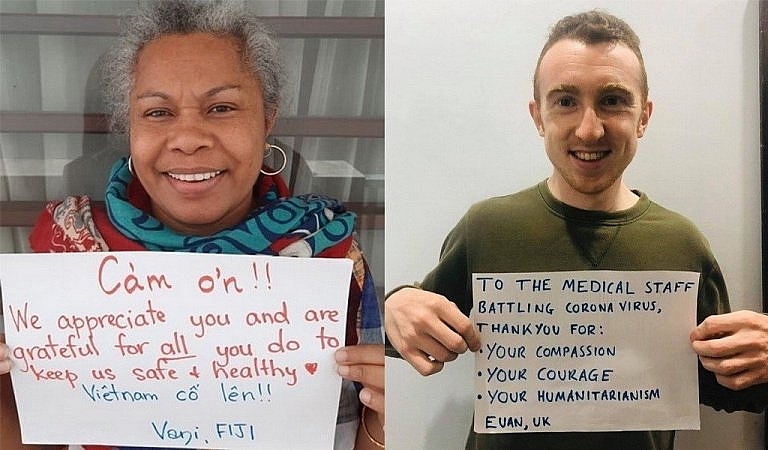 Cảm ơn!!
We appreciate you and are
grateful for all you do to
keep us safe & healthy ♥
Việtnam cố lên!!
Vani, FIJI
TO THE MEDICAL STAFF
BATTLING CORONA VIRUS,
THANKYOU FOR:
• YOUR COMPASSION
• YOUR COURAGE
• YOUR HUMANITARIANISM
EUAN, UK